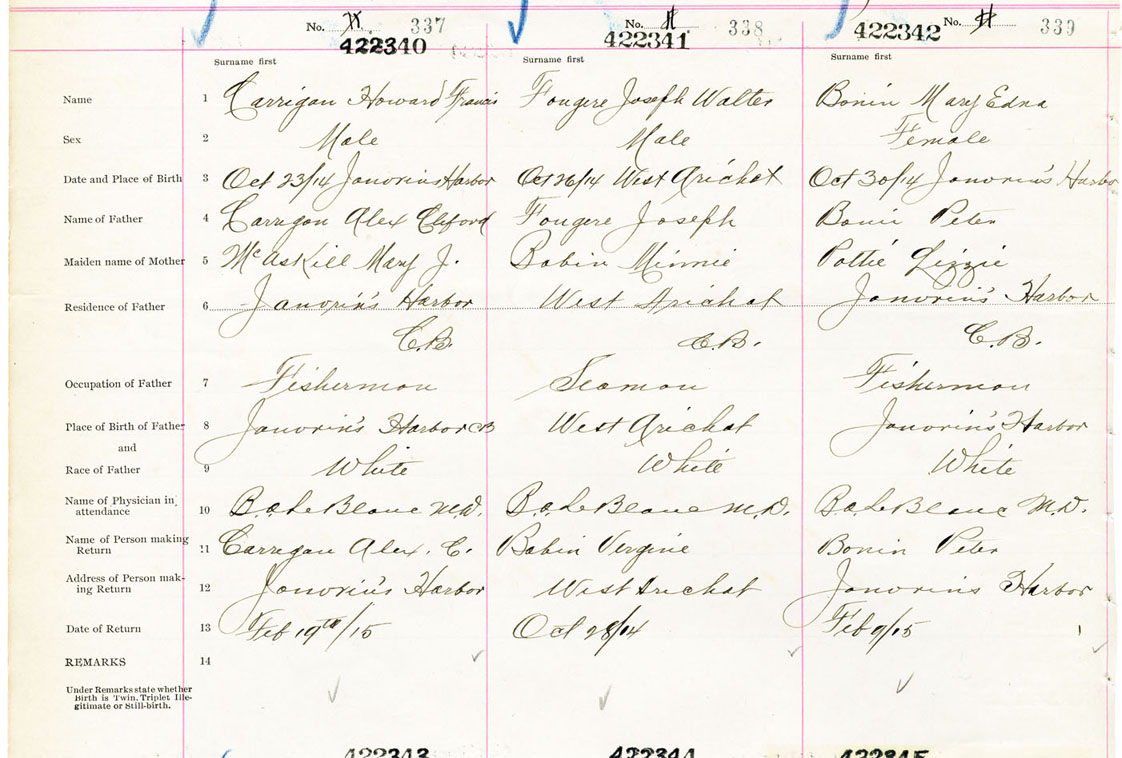 No. 337 No. 338 No. 339
422340 422341 422342
Surname first Surname first Surname first
Name 1 Carrigan Howard Francis Fougere Joseph Walter Bonin Mary Edna
Sex 2 Male Male Female
Date and Place of Birth 3 Oct 23/14 Janvrins Harbor Oct 26/14 West Arichat Oct 30/14 Janvrin's Harbor
Name of Father 4 Carrigan Alex Cliford Fougere Joseph Bonin Peter
Maiden name of Mother 5 McAskill Mary J. Babin Minnie Pottie Lizzie
Residence of Father 6 Janvrin's Harbor West Arichat Janvrin's Harbor
C.B. C.B. C.B.
Occupation of Father 7 Fisherman Seaman Fisherman
Place of Birth of Father 8 Janvrin's Harbor CB West Arichat Janvrin's Harbor
and
Race of Father 9 White White White
Name of Physician in
attendance 10 B.A. LeBlanc M.D. B.A. LeBlanc M.D. B.A. LeBlanc M.D.
Name of Person making
Return 11 Carrigan Alex. C. Babin Vergine Bonin Peter
Address of Person mak-
ing Return 12 Janvrin's Harbor West Arichat Janvrins Harbor
Date of Return 13 Feb 19th/15 Oct 28/14 Feb 9/15
REMARKS 14
Under Remarks state whether
Birth is Twin, Triplet Ille-
gitimate or Still-birth.
422343 422344 422345